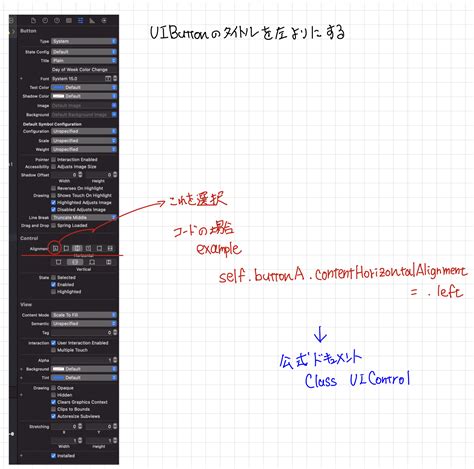 UIButtonのタイトルを左よりにする
Button
Type System
State Config Default
Title Plain
Day of Week Color Change
Font System 15.0
Text Color Default
Shadow Color Default
Image Default Image
Background Default Background Image
Default Symbol Configuration
Configuration Unspecified
Scale Unspecified
Weight Unspecified
Pointer Interaction Enabled
Accessibility Adjusts Image Size
Shadow Offset 0 0
Width Height
Reverses On Highlight
Drawing Shows Touch On Highlight
Highlighted Adjusts Image
Disabled Adjusts Image
Line Break Truncate Middle
Drag and Drop Spring Loaded
Control
Alignment
Horizontal
Vertical
State Selected
Enabled
Highlighted
View
Content Mode Scale To Fill
Semantic Unspecified
Tag 0
Interaction User Interaction Enabled
Multiple Touch
Alpha 1
Background Default
Tint Default
Drawing Opaque
Hidden
Clears Graphics Context
Clips to Bounds
Autoresize Subviews
Stretching 0 0
X Y
1 1
Width Height
Installed
これを選択
コードの場合
example
self.buttonA.contentHorizontalAlignment
= .left
公式ドキュメント
Class UIControl